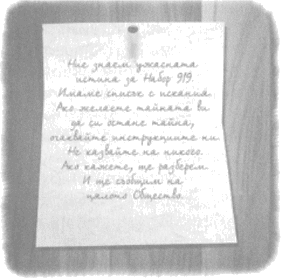 Ние знаем ужасната
истина за Набор 919.
Имаме списък с искания.
Ако желаете тайната ви
да си остане тайна,
очаквайте инструкциите ни.
Не казвайте на никого.
Ако кажете, ще разберем.
И ще съобщим на
цялото Общество.